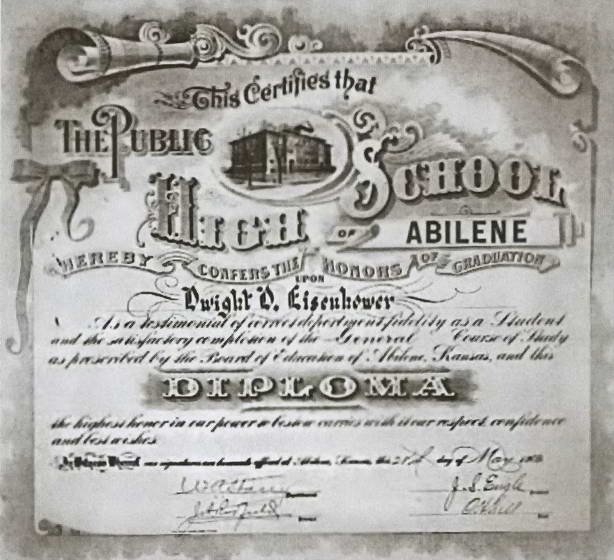 This Certifies that
THE PUBLIC
HIGH SCHOOL
OF ABILENE
HEREBY CONFERS THE HONORS OF GRADUATION
UPON
Dwight D. Eisenhower
As a testimonial of correct deportment fidelity as a Student
and the satisfactory completion of the General Course of Study
as prescribed by the Board of Education of Abilene, Kansas, and this
DIPLOMA
the highest honor in our power to bestow carries with it our respect, confidence
and best wishes.
In Witness Whereof our signatures are hereunto affixed at Abilene, Kansas, this day of May
J. S. Engle